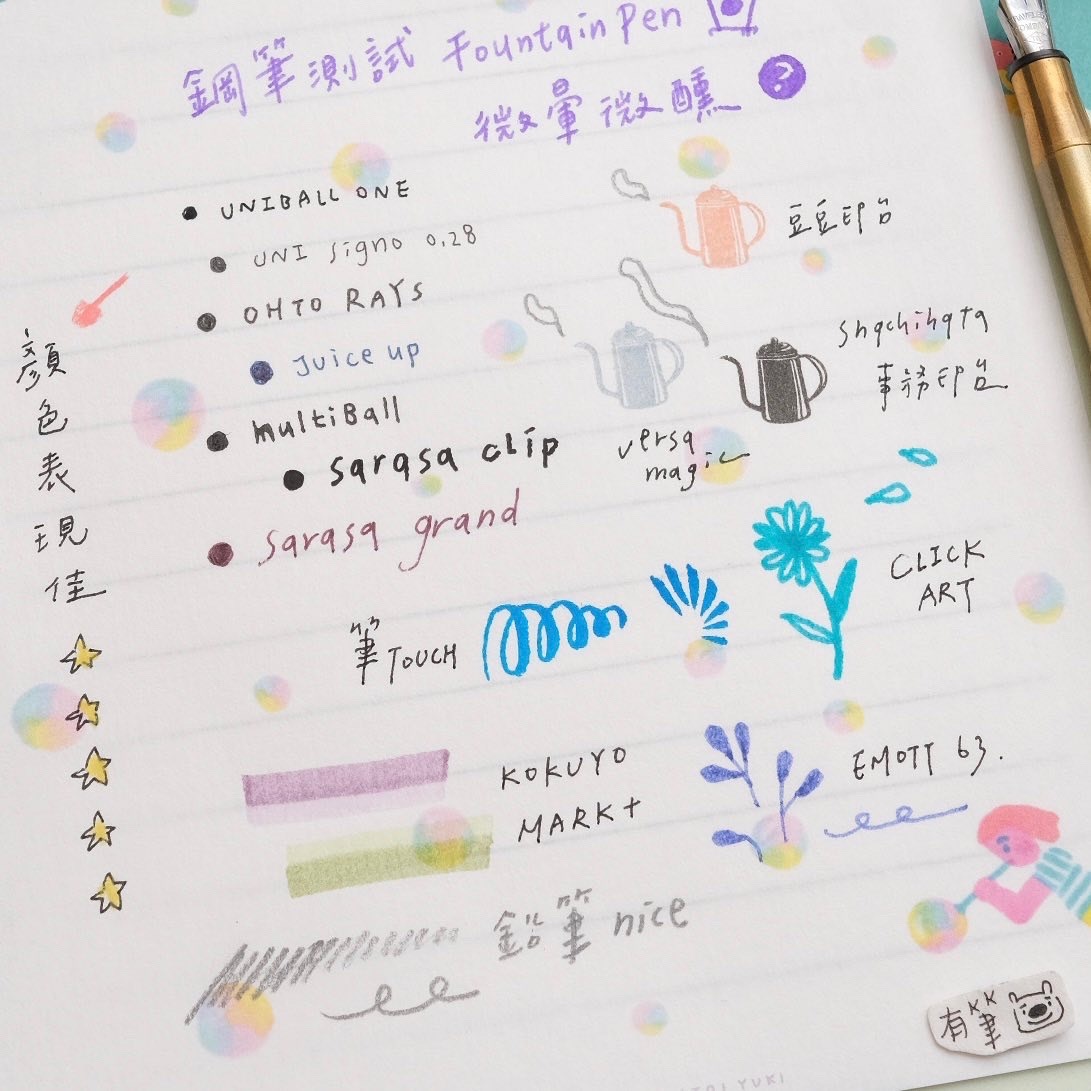 鋼筆測試 Fountain Pen
微暈微醺
?
UNIBALL ONE
UNI signo 0.28
OHTO RAYS
Juice up
multiBall
sarasa clip
sarasa grand
顏色表現佳
豆豆印台
shachihata
事務印台
versa
magic
筆TOUCH
CLICK
ART
KOKUYO
MARK+
EMOTT 63.
鉛筆 nice
有筆
YUKI